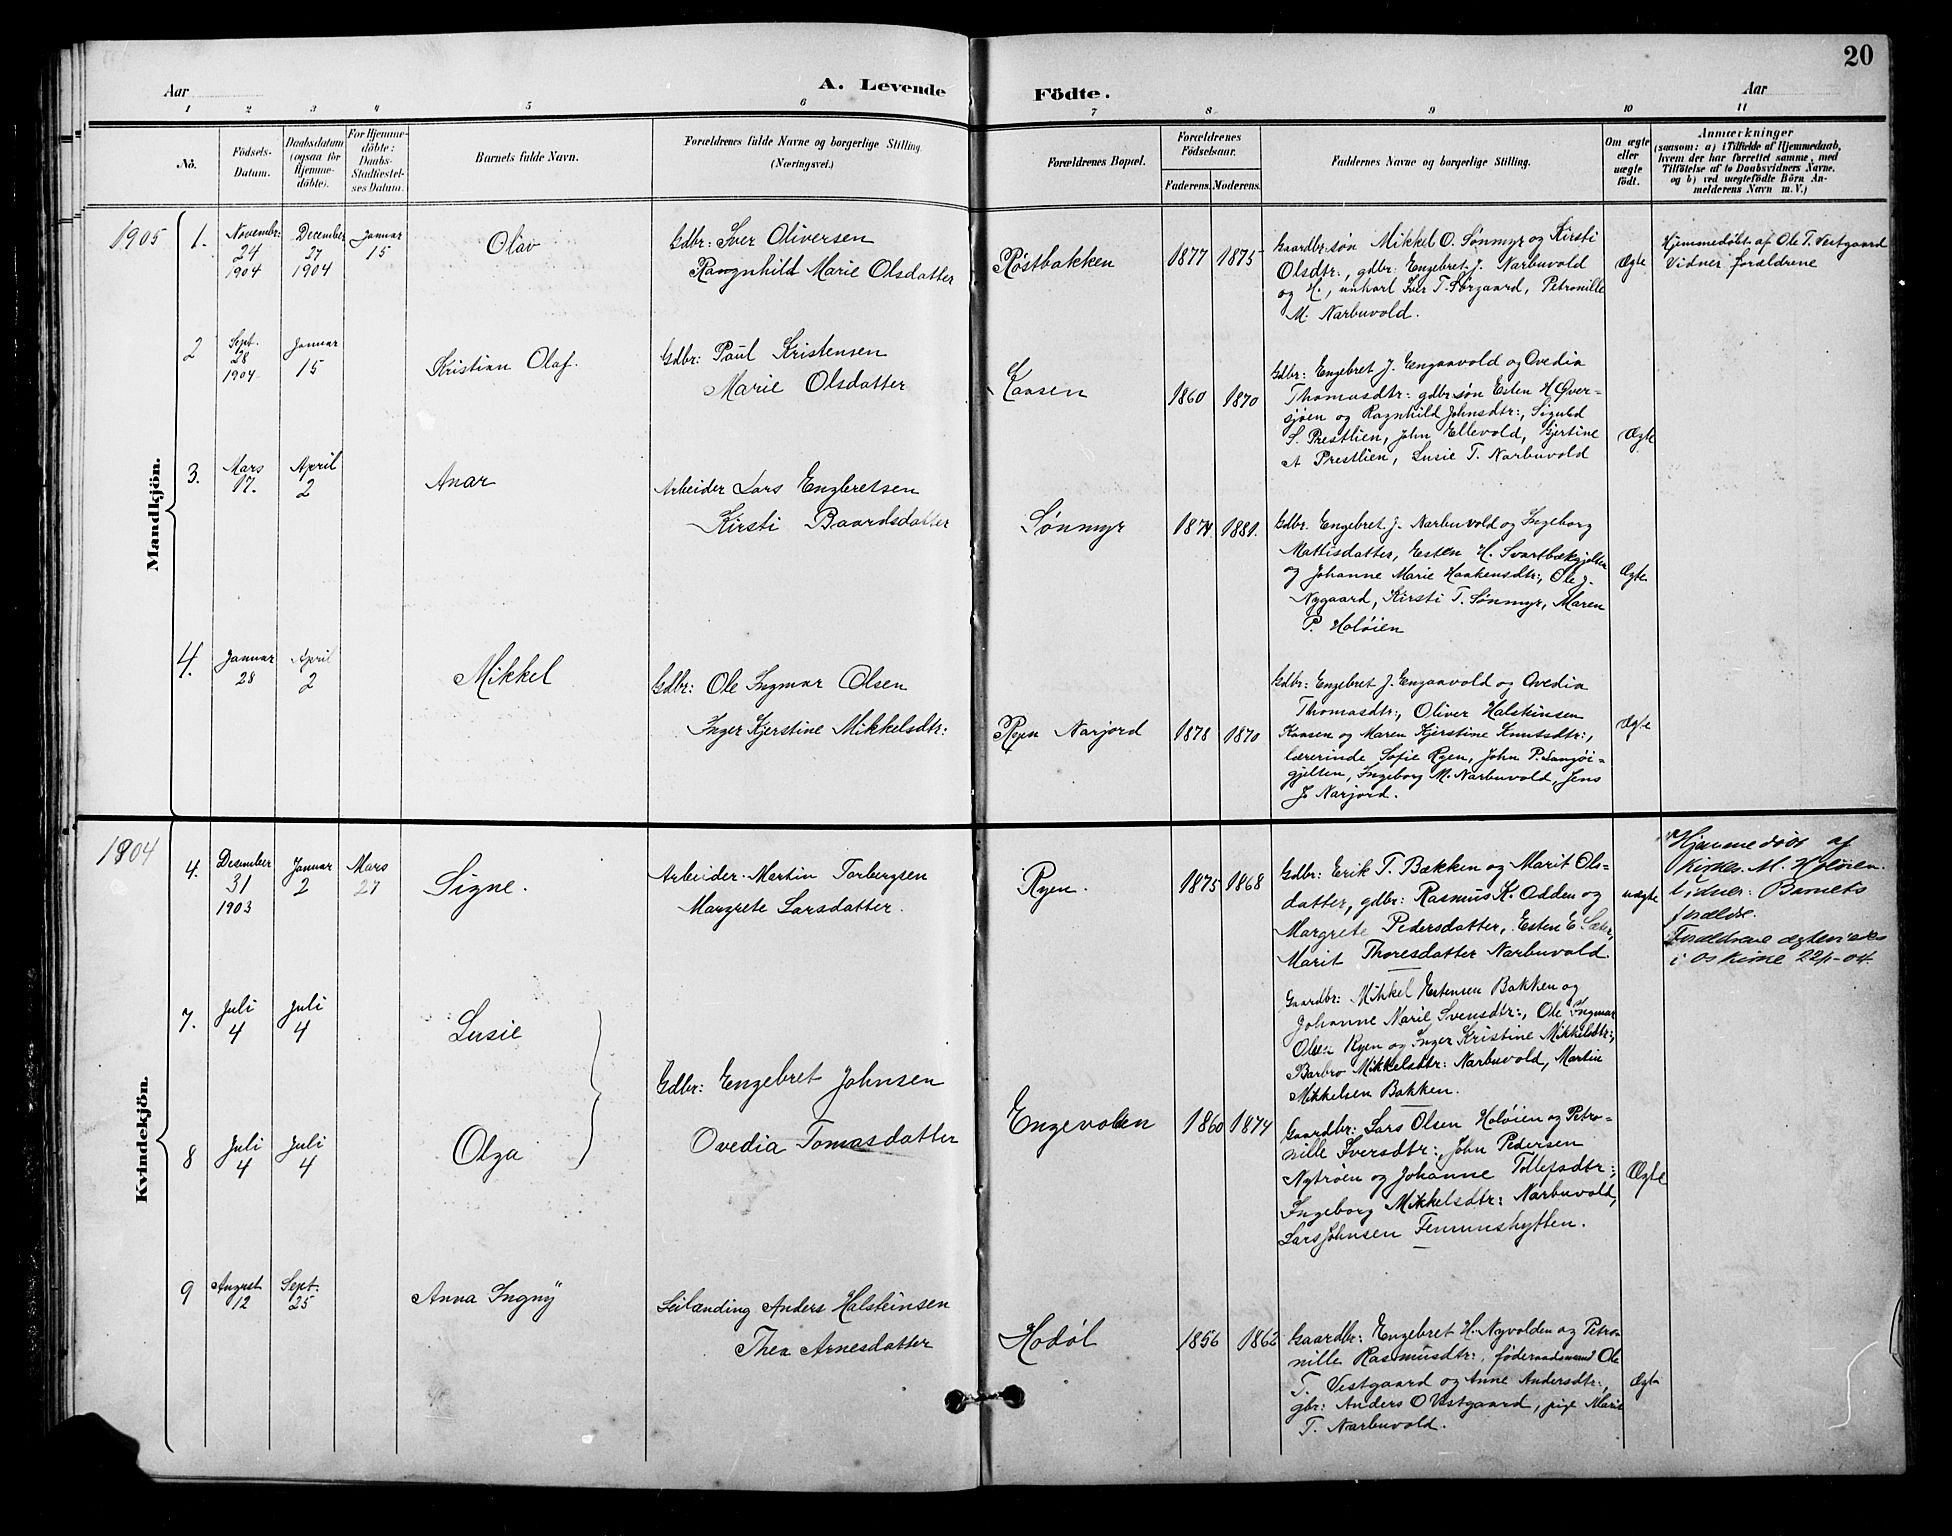 20
Aar
A. Levende Födte.
Aar
1 2 3 4 5 6 7 8 9 10 11
No.
Födsels-
Datum.
Daabsdatum
(ogsaa for
Hjemme-
döbte).
For Hjemme-
döbte:
Daabs-
Stadfæstel-
ses Datum.
Barnets fulde Navn.
Forældrenes fulde Navne og borgerlige Stilling
(Næringsvei.)
Forældrenes Bopæl.
Forældrenes
Födselsaar.
Faderens. Moderens.
Faddernes Navne og borgerlige Stilling.
Om ægte
eller
uægte
födt.
Anmærkninger
(saasom: a) i Tilfælde af Hjemmedaab,
hvem der har forrettet samme, med
Tilföielse af to Daabsvidners Navne.
og b) ved uægtefödte Börn An-
melderens Navn m. V.)
Mandkjön.
1905
1.
Novembr:
24
1904
December
27
1904
Januar
15
Olav
Gdbr: Iver Oliversen
Rangnhild Marie Olsdatter
Røstbakken
1877 1875
Gaardbr:søn Mikkel O. Sønmyr og Kirsti
Olsdtr., gdbr: Engebret J. Narbuvold
og H., unkarl Iver T. Sørgaard, Petronille
M. Narbuvold.
Ægte
Hjemmedøbt af Ole T. Vestgaard
Vidner forældrene
2
Sept.
28
1904
Januar
15
Kristian Olaf.
Gdbr: Paul Kristensen
Marie Olsdatter
Kaasen
1860 1870
Gdbr: Engebret J. Engaavold og Ovedia
Thomasdtr: gdbr:søn Esten H. Øver-
sjøen og Ragnhild Johnsdtr:, Sigurd
S. Prestlien, John Ellevold, Gjertine
A Prestlien, Lusie T. Narbuvold
Ægte
3.
Mars
17.
April
2
Anar
Arbeider Lars Engebretsen
Kirsti Baardsdatter
Sønmyr
1874 1881.
Gdbr. Engebret J. Narbuvold og Ingeborg
Mattisdatter, Esten H. Svartbækgjelten
og Johanne Marie Haakensdtr:, Ole J.
Nygaard, Kirsti T. Sønmyr, Maren
P. Holøien
Ægte
4.
Januar
28
April
2
Mikkel
Gdbr: Ole Ingmar Olsen
Inger Kjerstine Mikkelsdtr:
Ryen Narjord
1878 1870
Gdbr: Engebret J. Engaavold og Ovedia
Thomasdtr:, Oliver Halstensen
Kaasen og Maren Kjerstine Knutsdtr:,
lærerinde Sofie Ryen, John P. Langøi-
gjelten, Ingeborg M. Narbuvold, Jens
J. Narjord.
Ægte
Kvindekjön.
1904
4.
December
31
1903
Januar
2
Mars
27
Signe.
Arbeider. Martin Torbergsen
Margrete Larsdatter.
Ryen.
1875 1868
Gdbr: Erik T. Bakken og Marit Ols-
datter, gdbr: Rasmus K. Odden og
Margrete Pedersdatter, Esten E. Sæter,
Marit Thoresdatter Narbuvold.
uægte
Hjemmedøbt af
Kirkes. M. Holøien.
Vidner: Barnets
forældre.
Forældrene ægteviedes
i Os kirke 22/1-04.
7.
Juli
4
Juli
4
Lusie
Gaardbr: Mikkel Estensen Bakken og
Johanne Marie Svensdtr:, Ole Ingmar
Olsen Ryen og Inger Kristine Mikkelsdtr:,
Barbro Mikkelsdtr: Narbuvold, Martin
Mikkelsen Bakken.
Gdbr: Engebret Johnsen
Ovedia Tomasdatter
Engevolden
1860 1874
8
Juli
4
Juli
4
Olga
Gaardbr: Lars Olsen Holøien og Petro-
nille Iversdtr:, John Pedersen
Nytrøen og Johanne Tollefsdtr:,
Ingeborg Mikkelsdtr: Narbuvold,
Lars Johnsen Femunshytten.
Ægte
9
August
12
Sept.
25
Anna Ingny
Leilænding Anders Halsteinsen
Thea Arnesdatter
Hodøl
1856 1862
Gaardbr: Engebret H. Nyvolden og Petro-
nille Rasmusdtr:, føderaadsmand Ole
T. Vestgaard og Anne Andersdtr:,
gbr: Anders O Vestgaard, pige Marie
T. Narbuvold.
Ægte